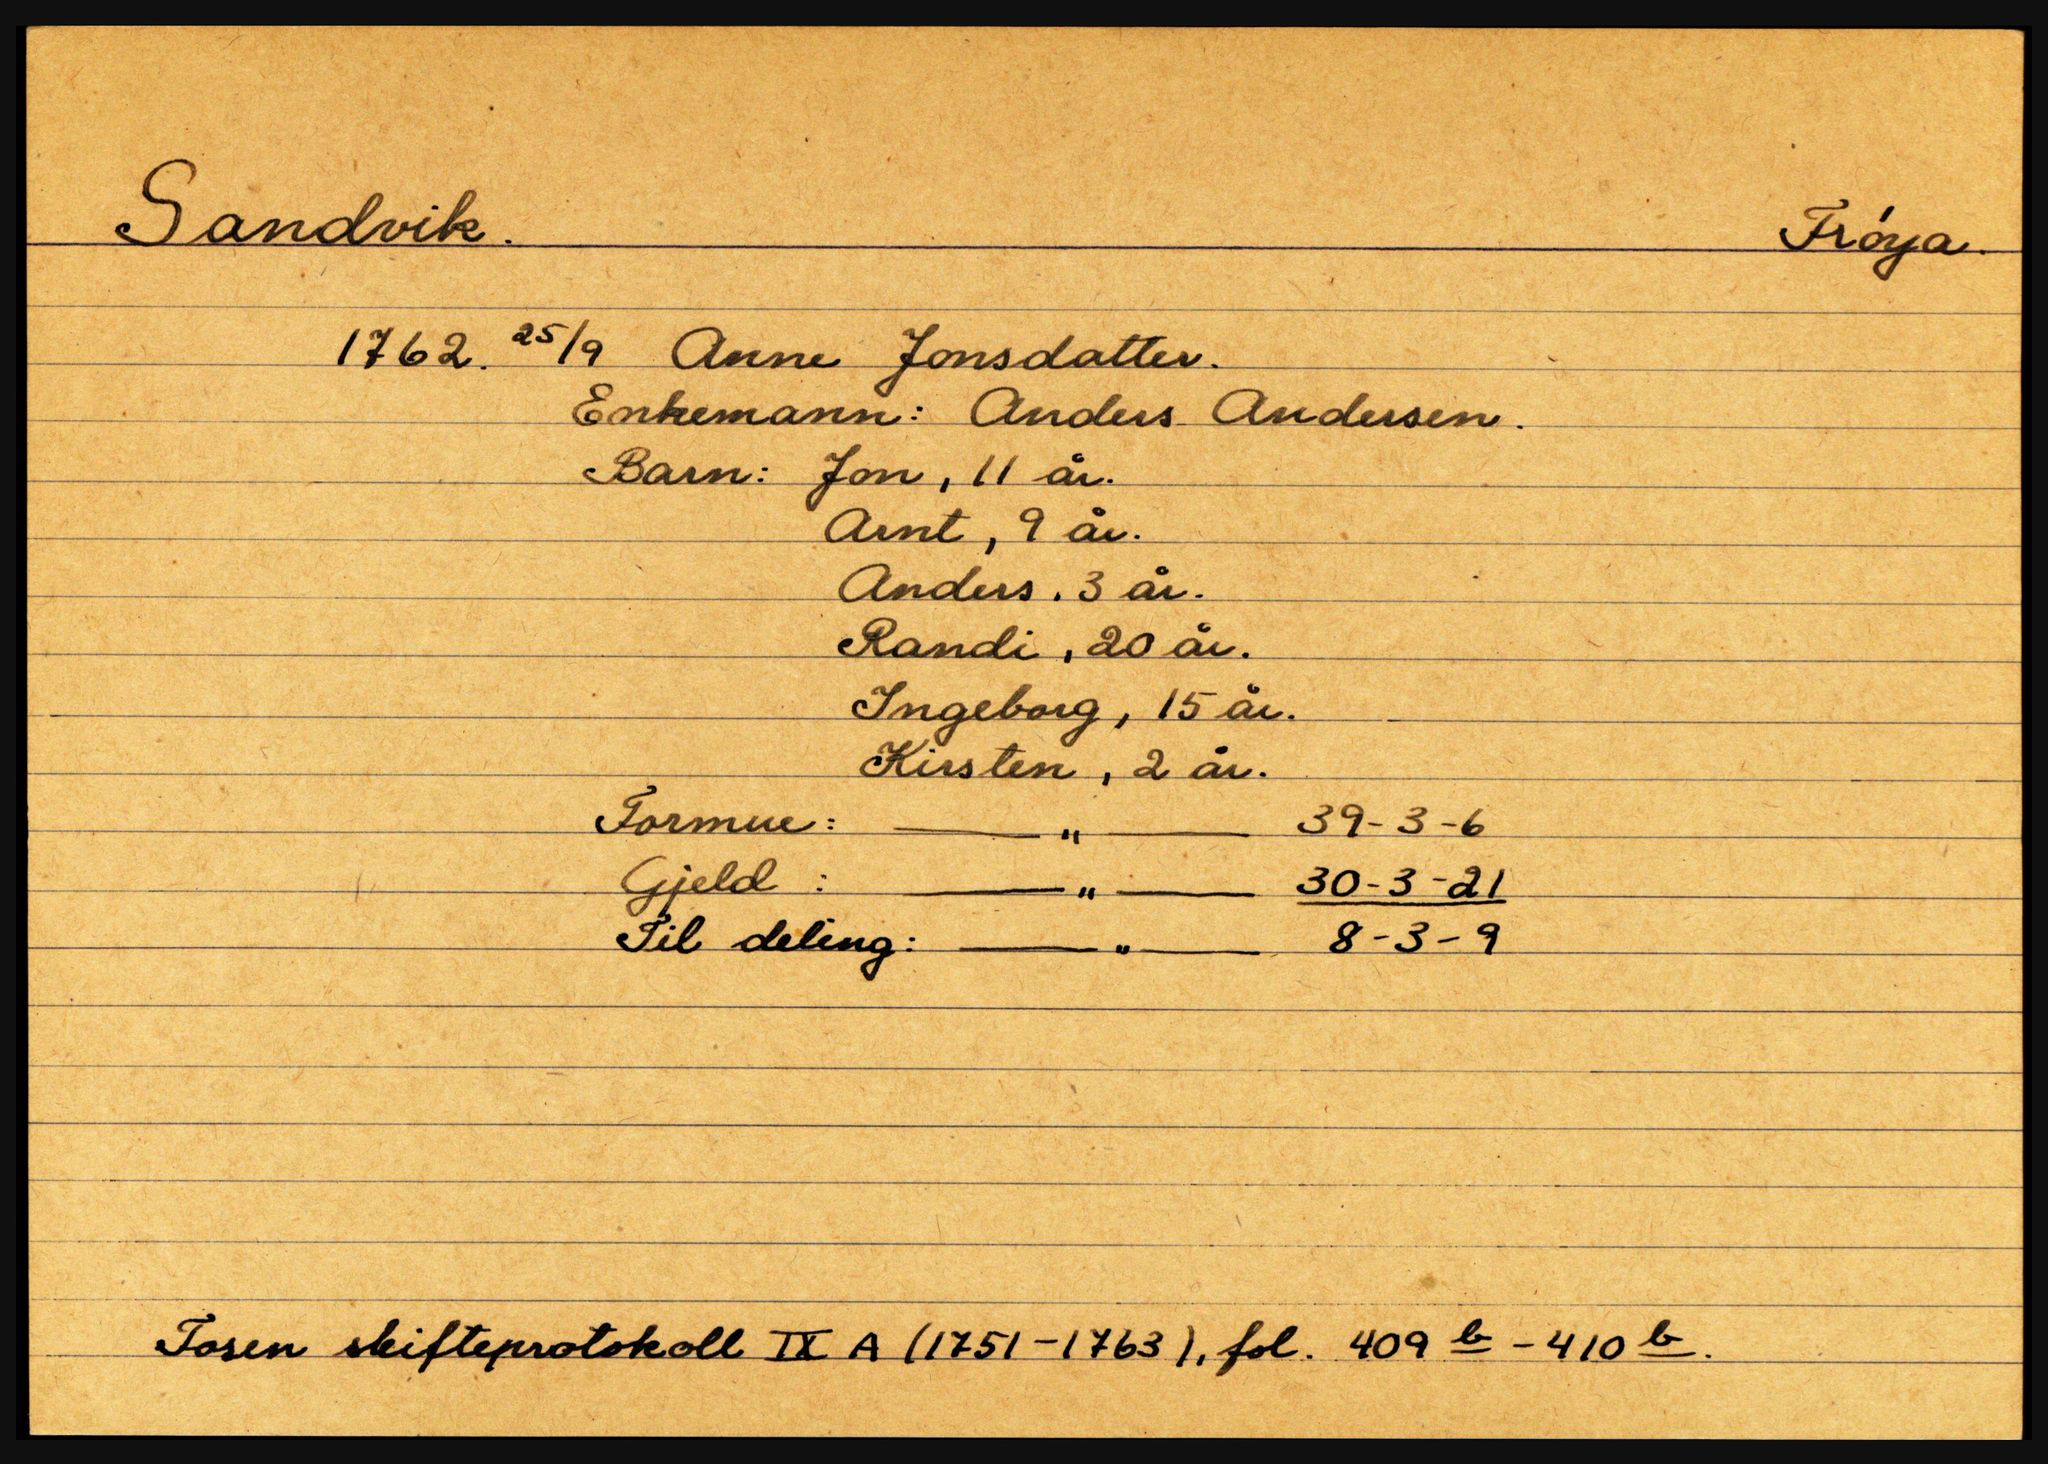 Sandvik. Frøya.
1762. 25/9 Anne Jonsdatter.
Enkemann: Anders Andersen.
Barn: Jon, 11 år.
Arnt, 9 år.
Anders. 3 år.
Randi, 20 år.
Ingeborg, 15 år.
Kirsten, 2 år.
Formue: — " — 39-3-6
Gjeld : — " — 30-3-21
Til deling: — " — 8-3-9
Fosen skifteprotokoll IX A (1751-1763), fol. 409 b - 410 b.